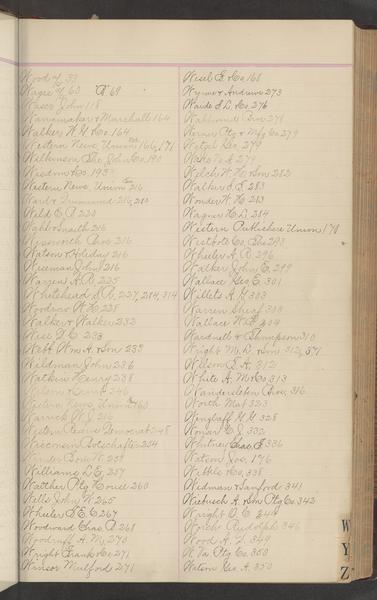 Wood 33
Wagie 60 69
Waser John 118
Wanamaker & Marshall 164
Walker W G Co. 164
Western News Union 166, 171
Wilkinson The John Co. 190
Wisdom Co. 193
Western News Union 216
Ward & Drummond 216, 280
Weld C 220
Wynworth Chas 216
Watson & Holiday 216
Wiseman John 216
Warren A. R. 225
Whitehead S. R. 227, 284, 314
Woodrow W. H. 228
Walker & Walker 232
Wise 233
Webb Wm A. & Son 233
Wildman John 236
Watkin Henry 238
Wilson Frank 246
Western News Union 260
Warrick W. 216
Western Democrat 248
Wisconsin Botschafter 254
Winder Bros W. 259
Williams L. G. 257
Walther Ptg House 260
Wells John W. 265
Wheeler S. E. C 267
Woodward Chas. P. 268
Woodruff A. M. 270
Wright Frank Co. 271
Winsor Mulford 271
Wesel F. Co. 168
Wynne & Andrews 273
Warde S. L. Co. 276
Bros 278
Werner Ptg & Mfg Co 279
Wetzel Geo. 279
274
Welch W. H. Son 282
Walker S. S. 283
Wonder W. H. 283
Wagner H. L. 284
Western Publishers Union 178
Westbote Co. The 293
Wheeler A. R. 296
Walker John E. 299
Wallace Geo E. 301
Willets A. G. 303
Warren Sheaf 308
Wallace W. 304
Wardnell & Thompson 310
Wright M. L. & Son 312, 571
Wilson E. A. 312
White A. M. Co 313
Wandersleben Chas. 316
Worth Mat 323
Wenglaff G. G. 328
Womar C. J. 332
Whitney Chas. F. 336
Watson Jos. 176
Wible Co, 338
Wedman & Sanford 341
Wiebusch A. & Son Ptg Co. 342
Wright O. C. 344
Worch Rudolph 346
Wood A. L. 349
W. Va. Ptg Co. 350
Watson Geo. A. 350
W
Y
Z